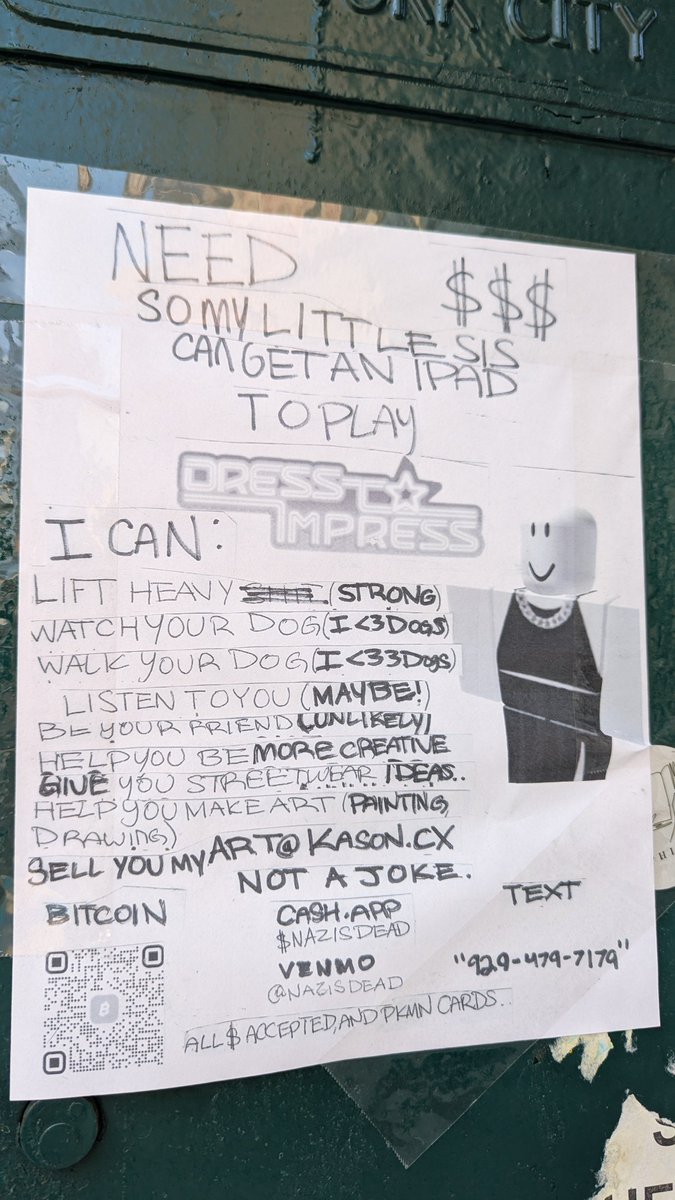 CITY
NEED $$$
SO MY LITTLE SIS
CAN GET AN IPAD
TO PLAY
DRESS TO
IMPRESS
I CAN:
LIFT HEAVY (STRONG)
WATCH YOUR DOG (I <3 DOG$)
WALK YOUR DOG (I <33 Dogs)
LISTEN TO YOU (MAYBE!)
BE YOUR FRIEND (UNLIKELY)
HELP YOU BE MORE CREATIVE
GIVE YOU STREETWEAR IDEAS..
HELP YOU MAKE ART (PAINTING,
DRAWING)
SELL YOU MY ART @ KASON.CX
NOT A JOKE.
BITCOIN
CASH.APP
$NAZISDEAD
VENMO
@NAZISDEAD
TEXT
"929-479-7179"
ALL $ ACCEPTED, AND PKMN CARDS..